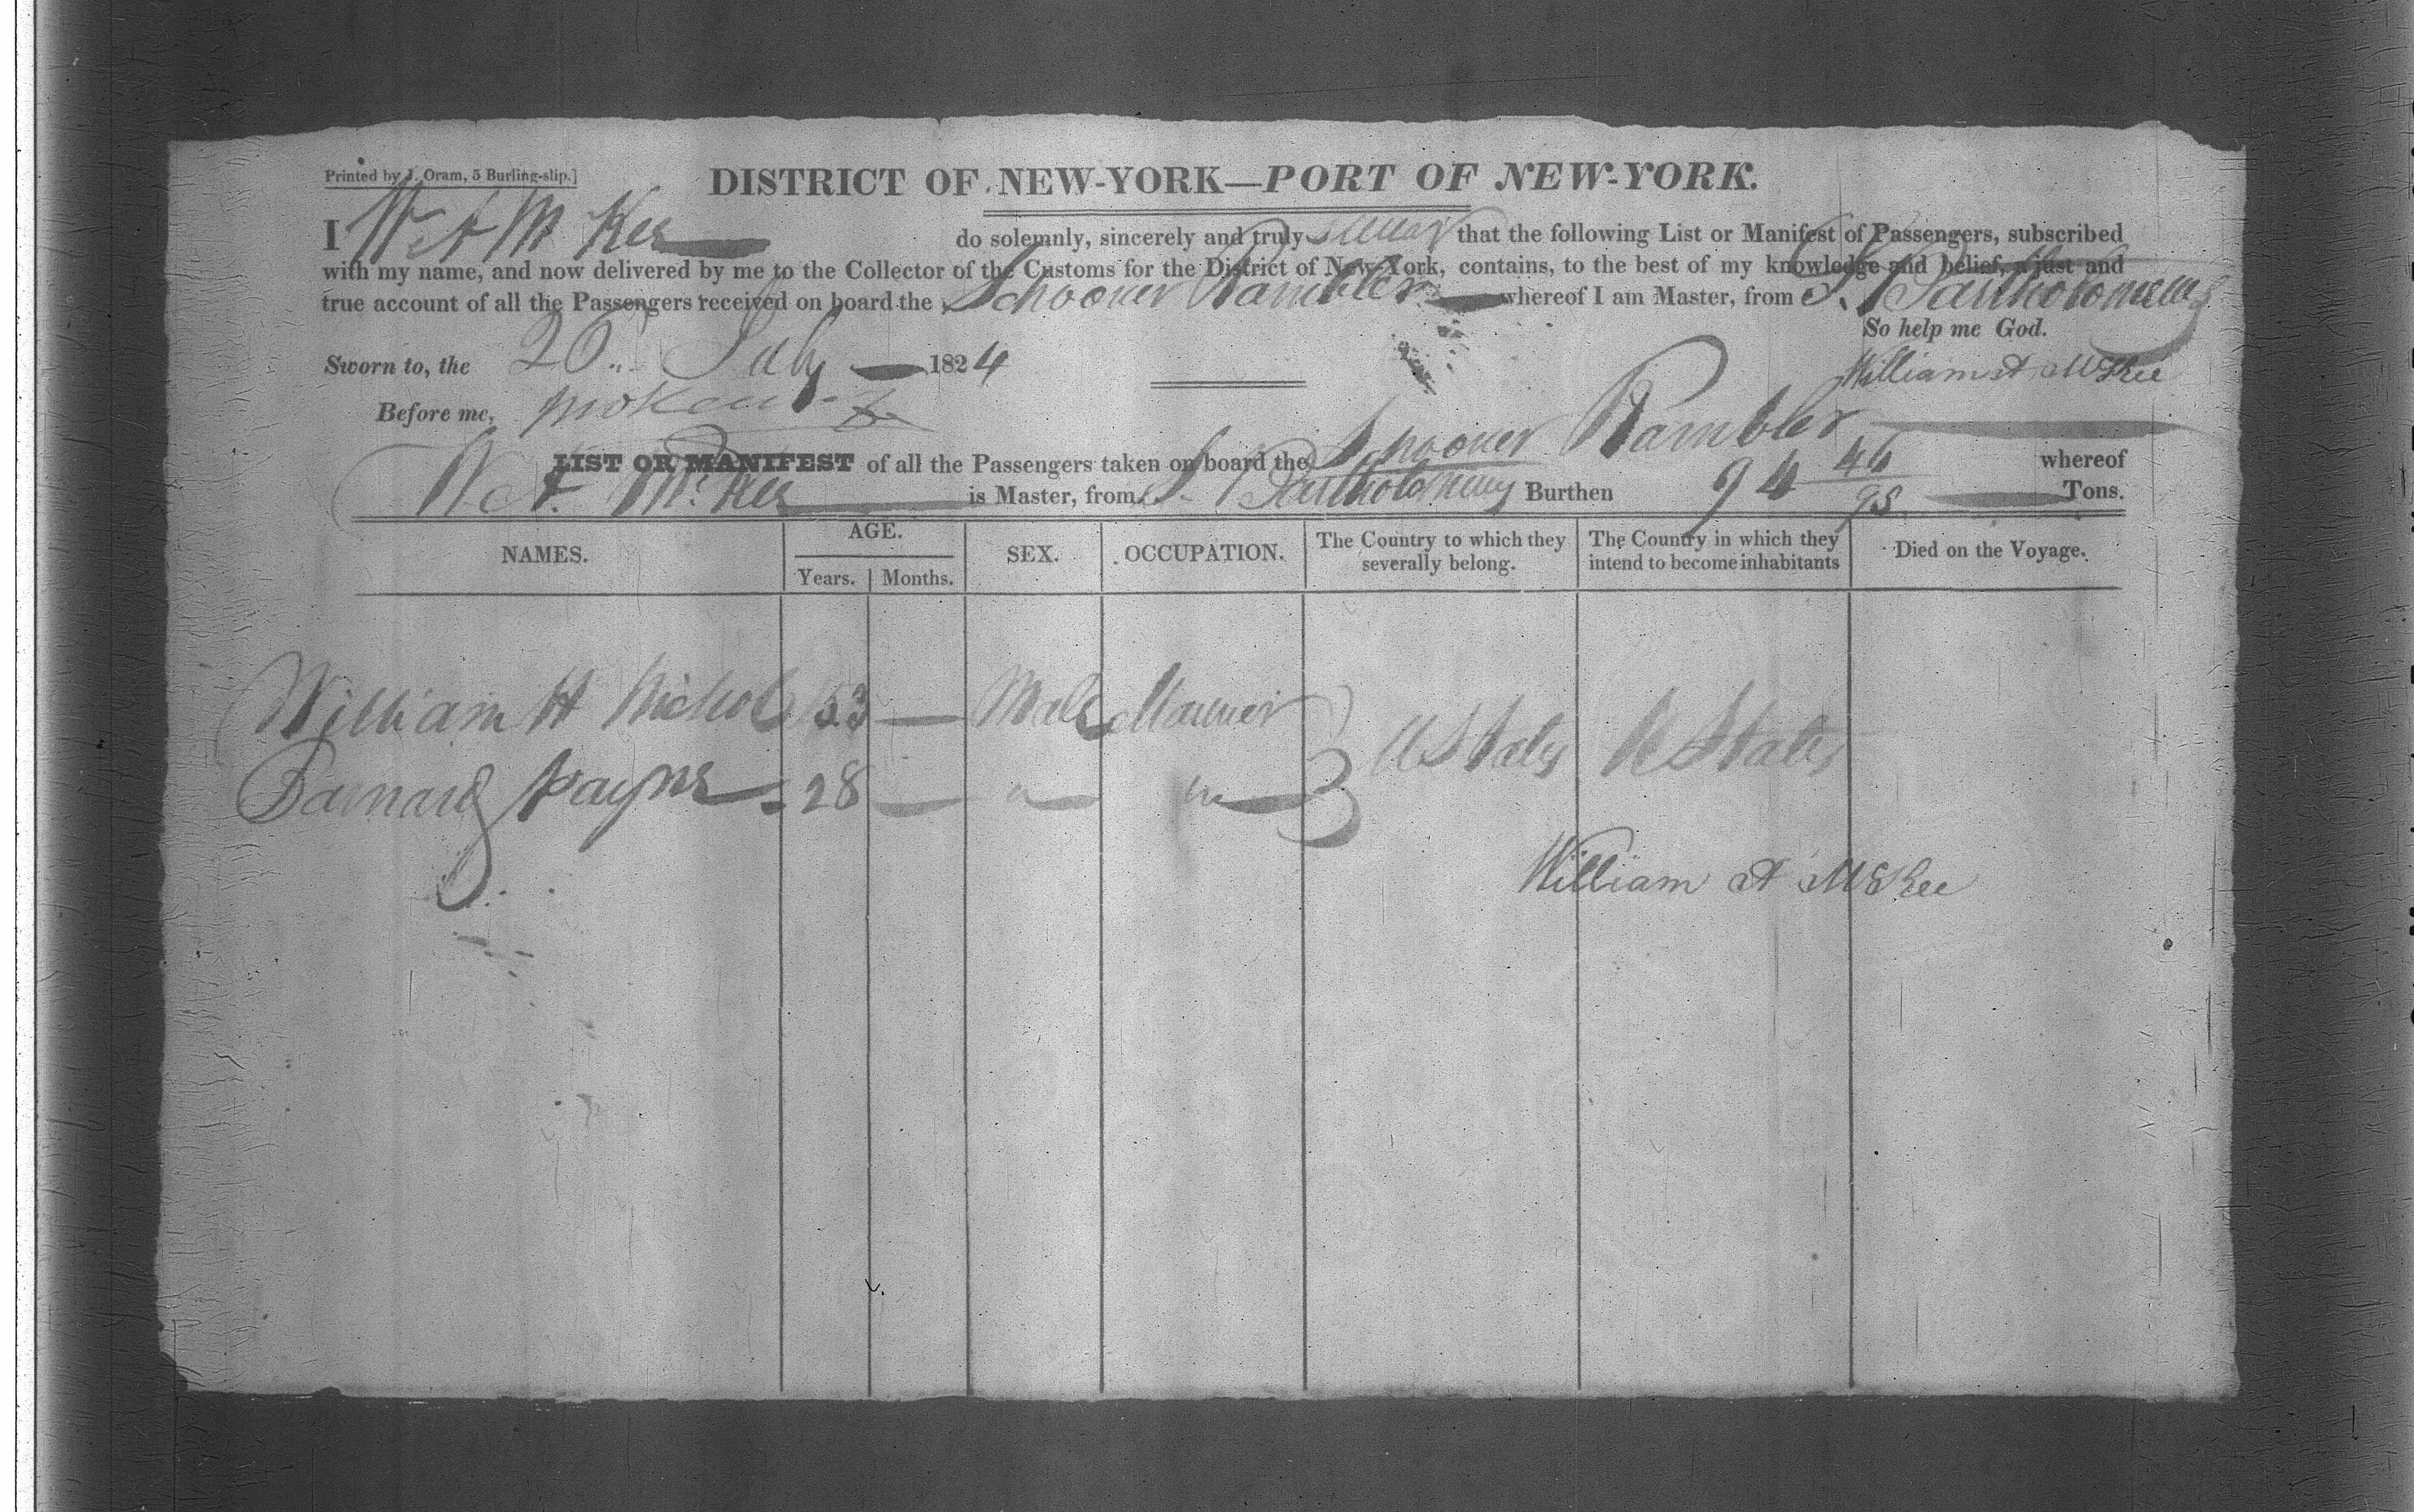 Printed by J. Oram, 5 Burling-slip.]
DISTRICT OF NEW-YORK—PORT OF NEW-YORK.
I Wm A McKee do solemnly, sincerely and truly swear that the following List or Manifest of Passengers, subscribed
with my name, and now delivered by me to the Collector of the Customs for the District of New York, contains, to the best of my knowledge and belief, a just and
true account of all the Passengers received on board the Schooner Rambler whereof I am Master, from St Bartholomews
So help me God.
Sworn to, the 26 July 1824
William A McKee
Before me,
LIST OR MANIFEST of all the Passengers taken on board the Schooner Rambler whereof
Wm A. McKee is Master, from St Bartholomews Burthen 94 46/95 Tons.
NAMES. AGE. Years. Months. SEX. OCCUPATION. The Country to which they severally belong. The Country in which they intend to become inhabitants Died on the Voyage.
William H Nichols 53 — Male Mariner } U States U States
Barnard Payne 28 — " "
William A McKee